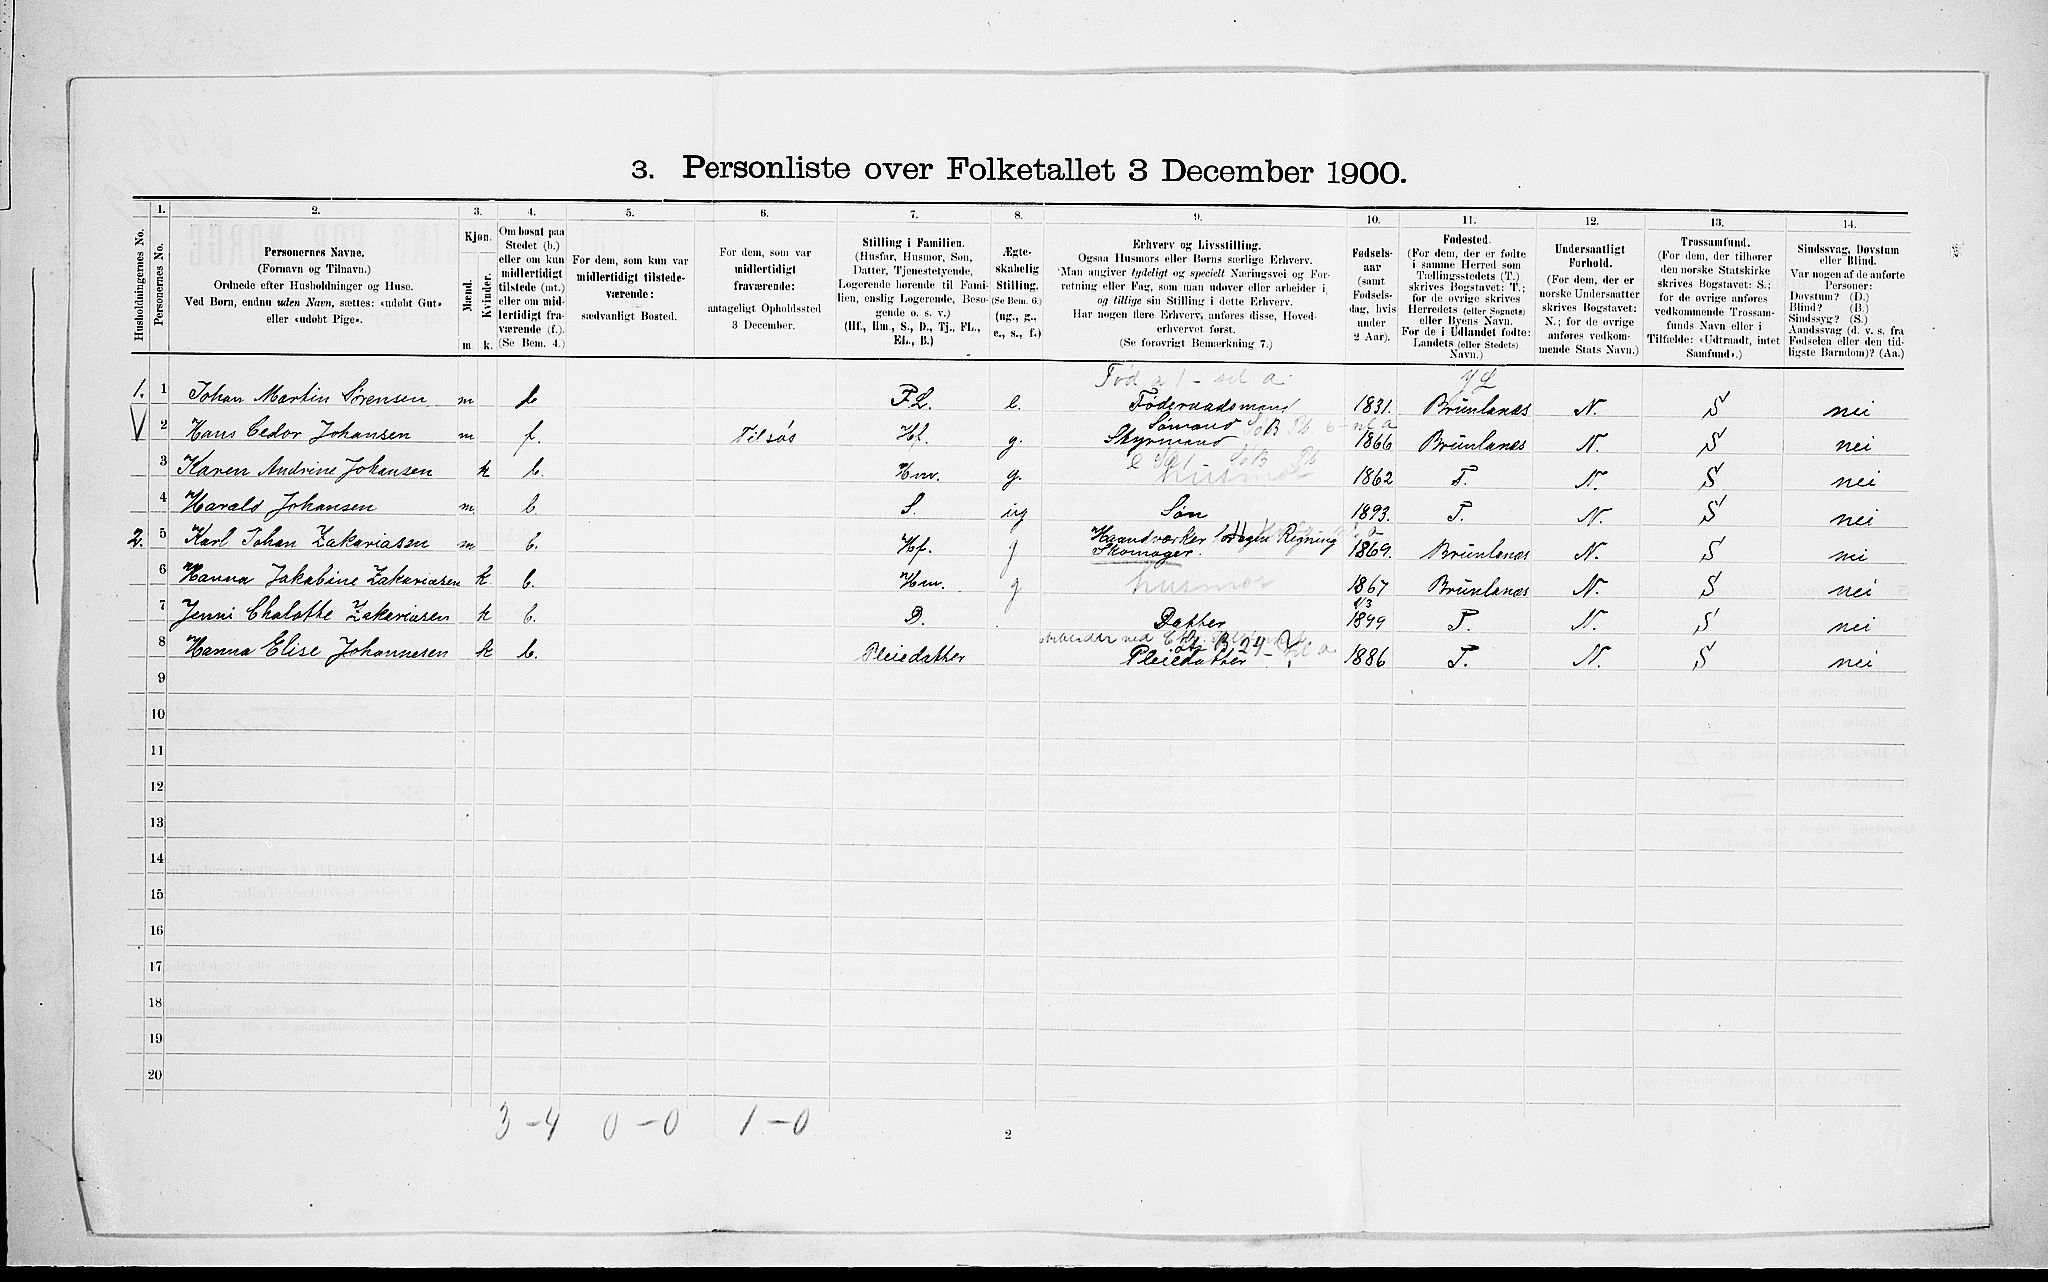 3. Personliste over Folketallet 3 December 1900.
1. 2. 3. 4. 5. 6. 7. 8. 9. 10. 11. 12. 13. 14.
Husholdningernes No.
Personernes No.
Personernes Navne.
(Fornavn og Tilnavn.)
Ordnede efter Husholdninger og Huse.
Ved Børn, endnu uden Navn, sættes: «udøbt Gut»
eller «udøbt Pige».
Kjøn.
Mænd. Kvinder.
m k.
Om bosat paa
Stedet (b.)
eller om kun
midlertidigt
tilstede (mt.)
eller om mid-
lertidigt fra-
værende (f.).
(Se Bem. 4.)
For dem, som kun var
midlertidigt tilstede-
værende:
sædvanligt Bosted.
For dem, som var
midlertidigt
fraværende:
antageligt Opholdssted
3 December.
Stilling i Familien.
(Husfar, Husmor, Søn,
Datter, Tjenestetyende,
Logerende hørende til Fami-
lien, enslig Logerende, Besø-
gende o. s. v.)
(Hf., Hm., S., D., Tj., FL.,
EL., B.)
Ægte-
skabelig
Stilling.
(Se Bem. 6.)
(ug., g.,
e., s., f.)
Erhverv og Livsstilling.
Ogsaa Husmors eller Børns særlige Erhverv.
Man angiver tydeligt og specielt Næringsvei og For-
retning eller Fag, som man udøver eller arbeider i,
og tillige sin Stilling i dette Erhverv.
Har nogen flere Erhverv, anføres disse, Hoved-
erhvervet først.
(Se forøvrigt Bemærkning 7.)
Fødsels-
aar
(samt
Fødsels-
dag, hvis
under
2 Aar).
Fødested.
(For dem, der er fødte
i samme Herred som
Tællingsstedets (T.)
skrives Bogstavet: T.;
for de øvrige skrives
Herredets (eller Sognets)
eller Byens Navn.
For de i Udlandet fødte:
Landets (eller Stedets)
Navn.)
Undersaatligt
Forhold.
(For dem, der er
norske Undersaatter
skrives Bogstavet:
N.; for de øvrige
anføres vedkom-
mende Stats Navn.)
Trossamfund.
(For dem, der tilhører
den norske Statskirke
skrives Bogstavet: S.;
for de øvrige anføres
vedkommende Trossam-
funds Navn eller i
Tilfælde: «Udtraadt, intet
Samfund».)
Sindssvag, Døvstum
eller Blind.
Var nogen af de anførte
Personer:
Døvstum? (D.)
Blind? (B.)
Sindssyg? (S.)
Aandssvag (d. v. s. fra
Fødselen eller den tid-
ligste Barndom)? (Aa.)
1. 1 Johan Martin Sørensen m b F.L. e. Føderaadsmand 1831. Brunlanes N. S nei
2 Hans Cedor Johansen m f. Tilsøs Hf. g. Sømand
Styrmand 1866 Brunlanes N. S nei
3 Karen Andrine Johansen k b. Hm. g. husmor 1862 T. N. S nei
4 Harald Johansen m b. S. ug Søn 1893. T. N. S nei
2. 5 Karl Johan Zakariasen m b. Hf. g Haandværker Regning
Skomager. 1869. Brunlanes N. S nei
6 Hanna Jakobine Zakariasen k b. Hm. g husmor 1867 Brunlanes N. S nei
7 Jenni Chalotte Zakariasen k b. D. Datter 1/3
1899 T. N. S nei
8 Hanna Elise Johannesen k b. Pleiedatter Pleiedatter 1886 T. N. S nei
9
10
11
12
13
14
15
16
17
18
19
20
3 - 4 0 - 0 1 - 0
2